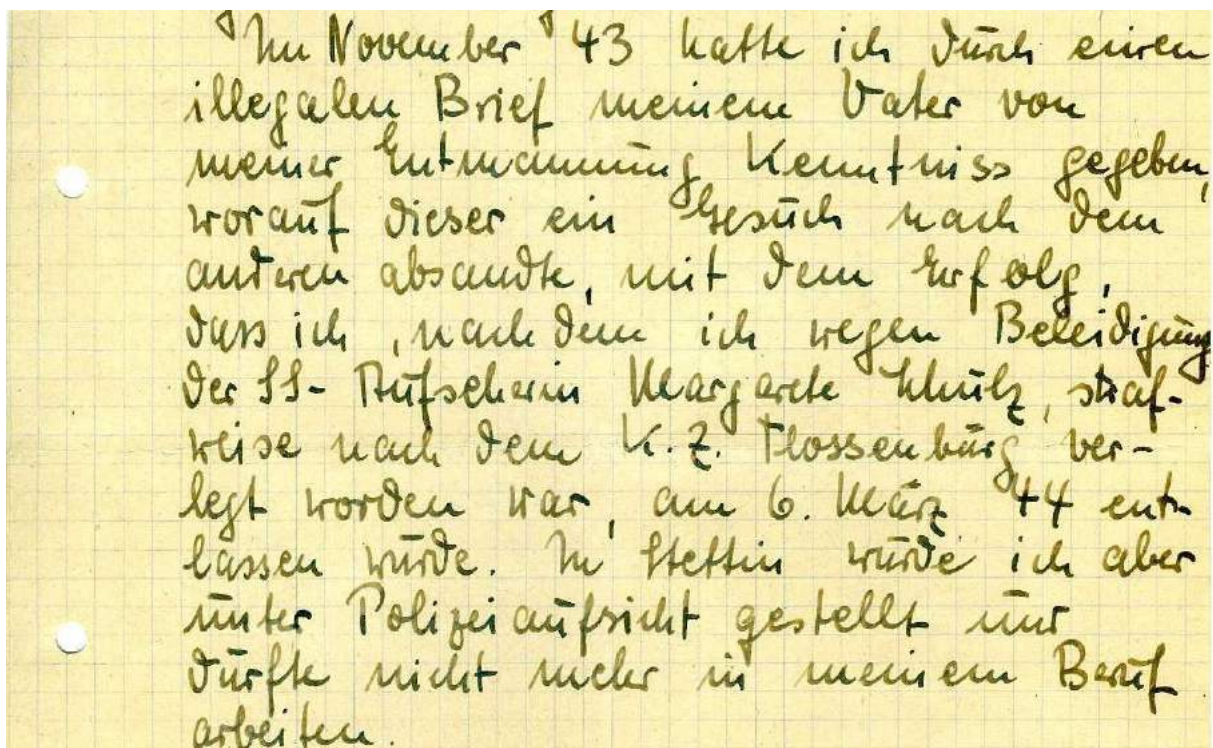 Im November '43 hatte ich durch einen
illegalen Brief meinem Vater von
meiner Entmannung Kenntniss gegeben,
worauf dieser ein Gesuch nach dem
anderen absandte, mit dem Erfolg,
dass ich, nach dem ich wegen Beleidigung
der SS-Aufseherin Margarete Schulz, straf-
weise nach dem K.Z. Flossenbürg ver-
legt worden war, am 6. März '44 ent-
lassen wurde. In Stettin wurde ich aber
unter Polizeiaufsicht gestellt und
durfte nicht mehr in meinem Beruf
arbeiten.